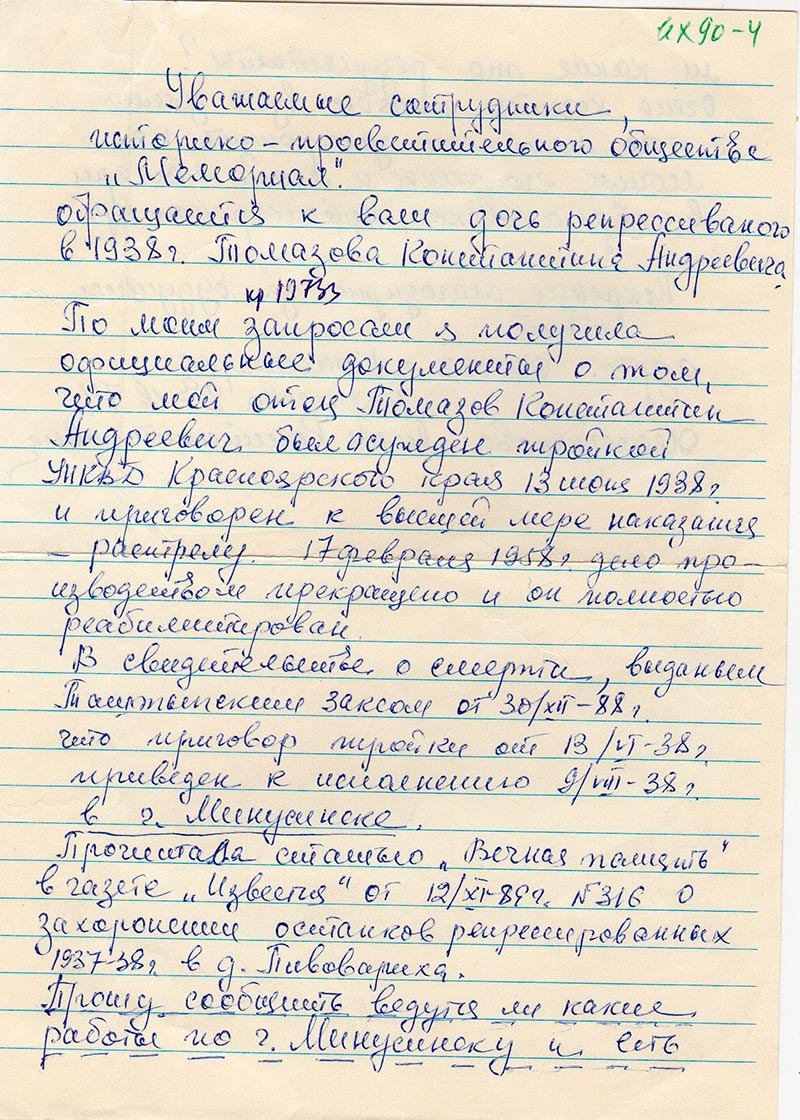 их90-4
Уважаемые сотрудники,
историко-просветительного общества
„Мемориал".
обращается к вам дочь репрессиваного
в 1938г. Томазова Константина Андреевича.
кр 19733
По моим запросам я получила
официальные документы о том,
что мой отец Томазов Константин
Андреевич был осужден тройкой
УНКВД Красноярского края 13 июня 1938г.
и приговорен к высшей мере наказания
- расстрелу. 17 февраля 1958г. дело про-
изводством прекращено и он полностью
реабилитирован.
В свидетельстве о смерти, выданым
загсом от 30/XII-88г.
что приговор тройки от 13/VI-38г.
приведен к исполнению 9/VIII-38г.
в г. Минусинске.
Прочитала статью „Вечная память"
в газете „Известия" от 12/XI-89г. №316 о
захоронении останков репрессированных
1937-38г. в д. Пивовариха.
Прошу сообщить ведутся ли какие
работы по г. Минусинску и есть